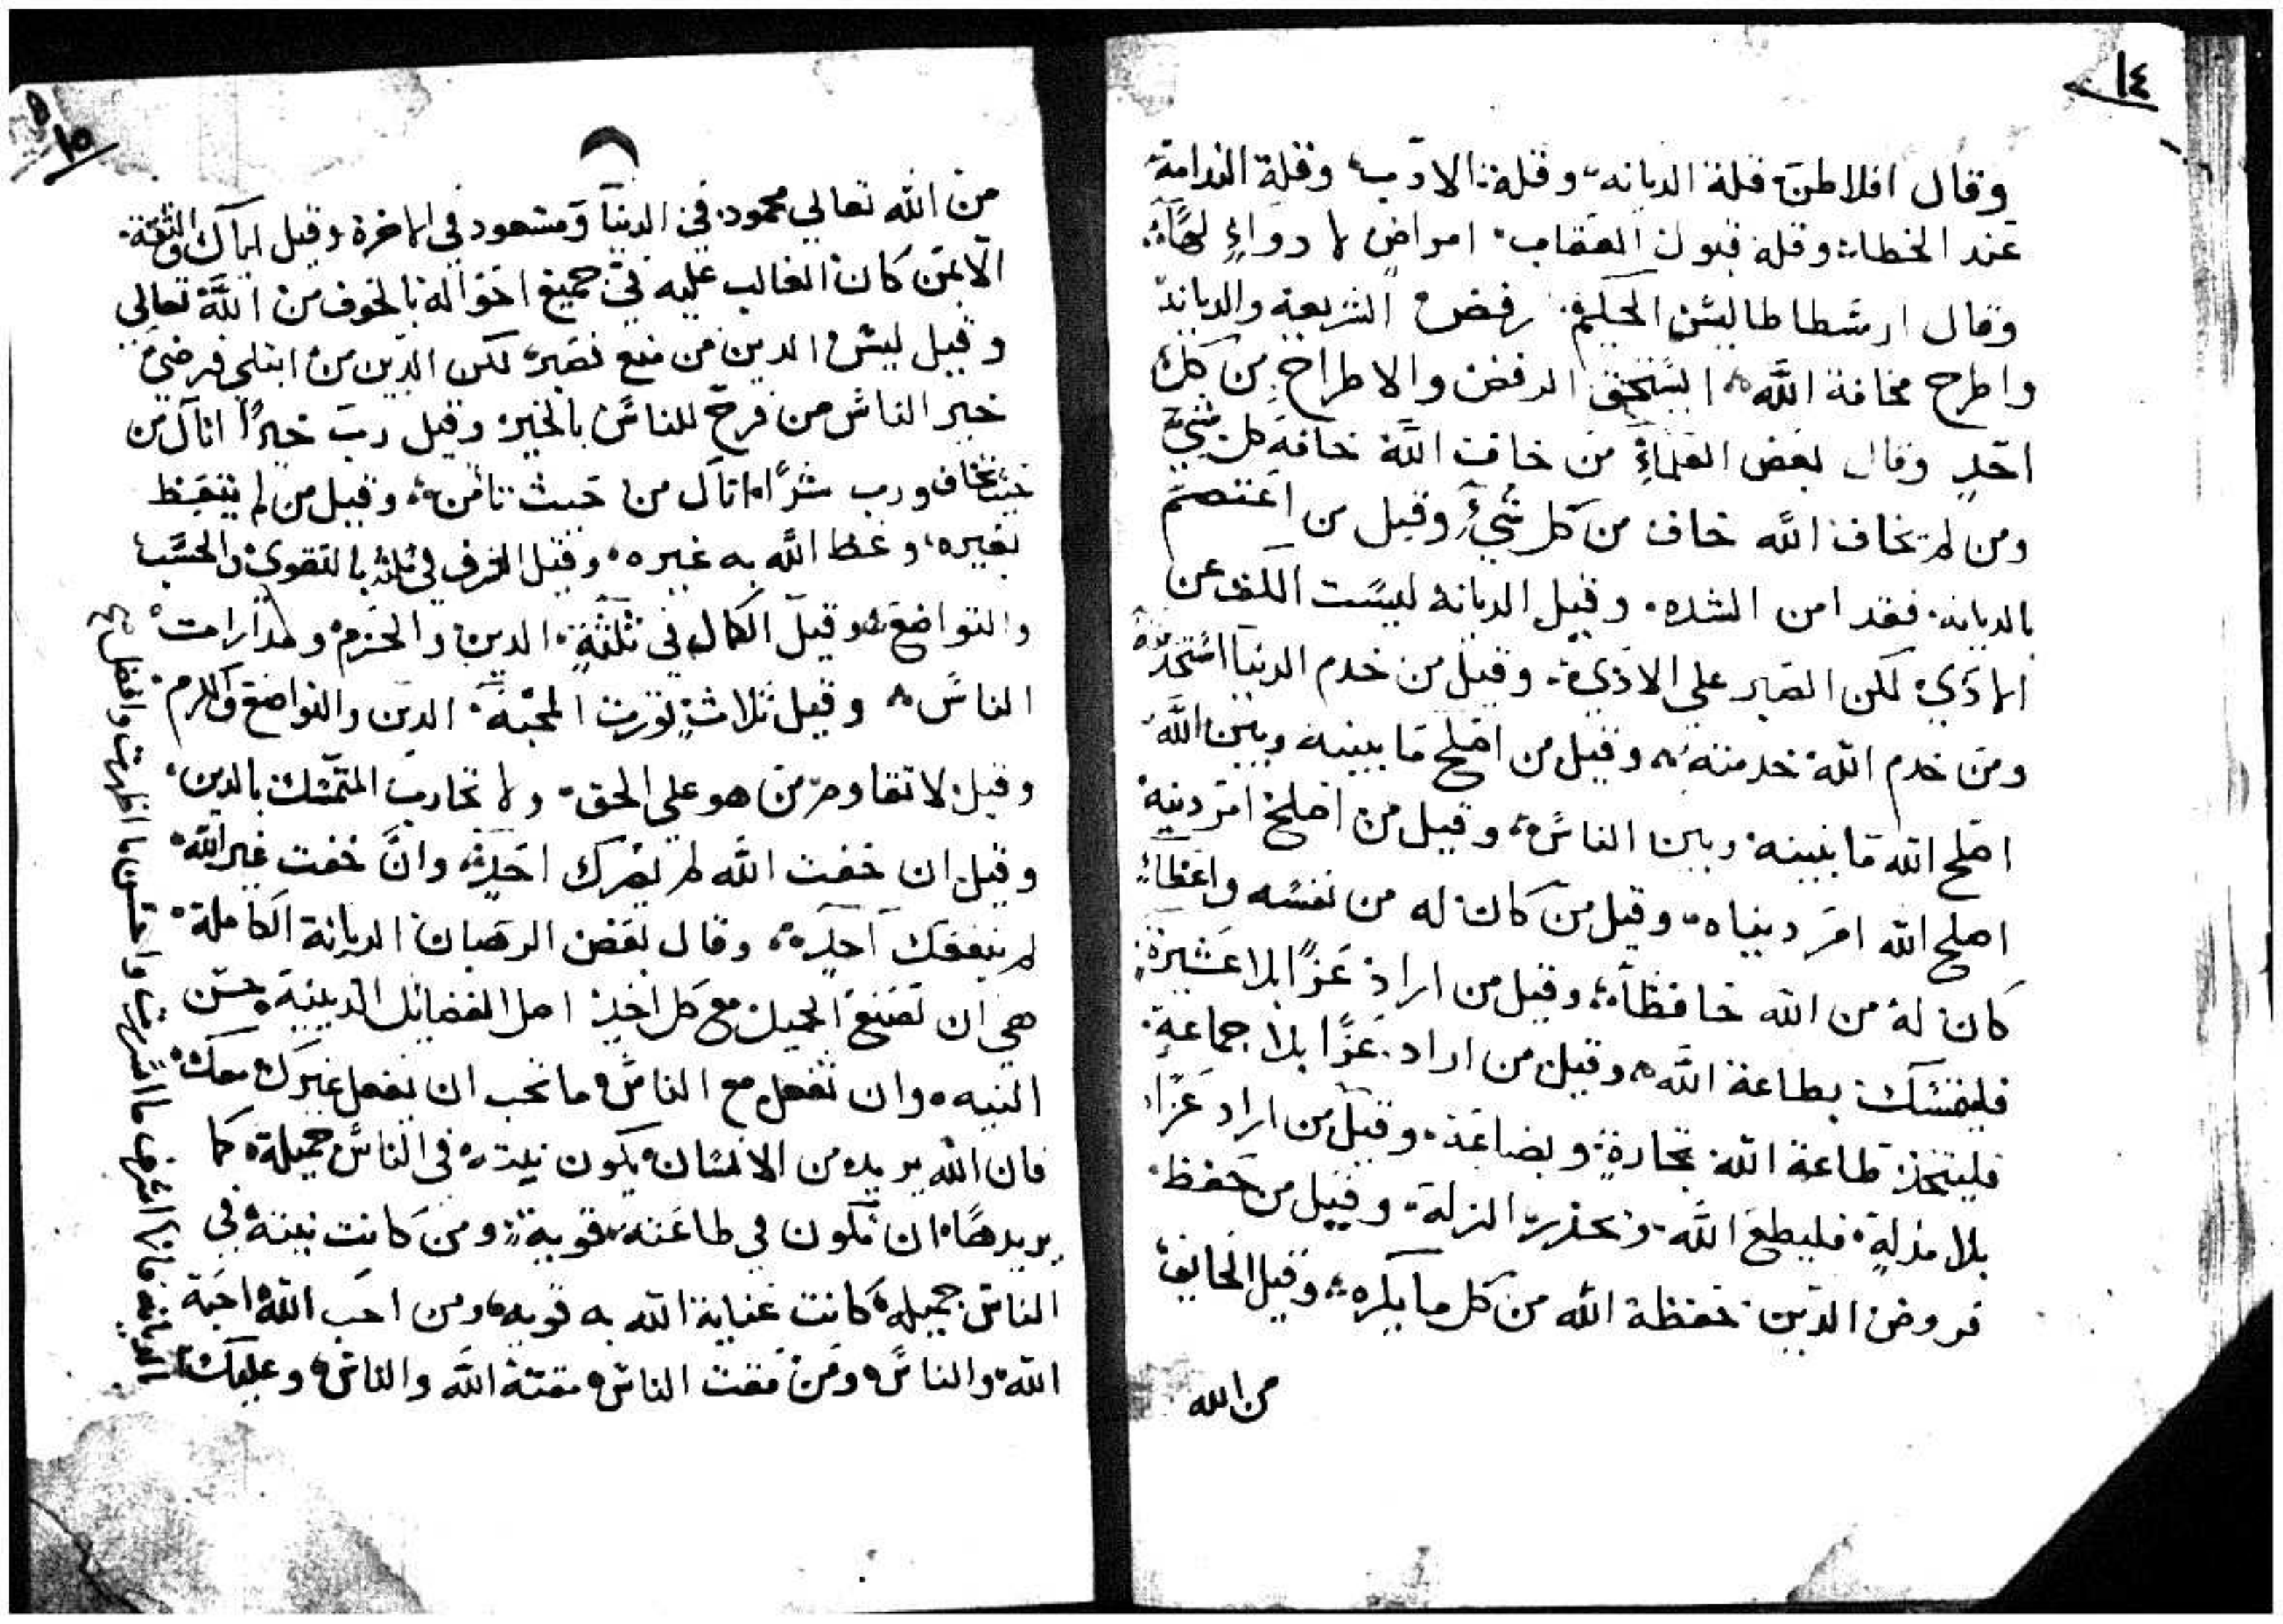 ١٤
وقال افلاطن قلة الديانه وقلة الادب وقلة الندامة
عند الخطا وقلة قبول العقاب امراض لا دواءٍ لها
وقال ارسطاطاليس الحكيم رفض الشريعة والديانة
واطرح مخافة الله استحق الرفض والاطراح من كل
احدٍ وقال بعض العلماءِ من خاف الله خافه كل شيءٍ
ومن لم يخاف الله خاف من كل شيءٍ وقيل من اعتصم
بالديانه فقد امن الشده وقيل الديانة ليست الكف عن
الاذي لكن الصبر علي الاذي وقيل من خدم الدنيا استخدمته
ومن خدم الله خدمته وقيل من اصلح ما بينه وبين الله
اصلح الله ما بينه وبين الناس وقيل من اصلح امر دينه
اصلح الله امر دنياه وقيل من كان له من نفسه واعظاً
كان له من الله حافظاً وقيل من اراد عزاً بلا عشيرةٍ
فليتمسك بطاعة الله وقيل من اراد عزًا بلا جماعةٍ
فليتخذ طاعة الله تجارةٍ وبضاعة وقيل من اراد عزًا
بلا مذلةٍ فليطع الله ويحذر الزلة وقيل من حفظ
فروض الدين حفظة الله من كل ما يكره وقيل الخايف
من الله
١٥
من الله تعالي محمود في الدنيا ومسعود في الاخرة وقيل اياك والثقة
الا بمن كان الغالب عليه في جميع احواله بالخوف من الله تعالي
وقيل ليس الدين من منع فصبر لكن الدين من ابتلي فرضي
خير الناس من فرح للناس بالخير وقيل رب خيرًا اتاك من
حيث تخاف ورب شرًا اتاك من حيث تامن وقيل من لم يتعظ
بغيره وعظ الله به غيره وقيل الشرف في ثلثه بالتقوي والحسب
والتواضع وقيل الكمال في ثلثةٍ الدين والحزم ومدارات
الناس وقيل ثلاثةٍ تورث المحبة الدين والتواضع والكرم
وقيل لا تقاوم من هو علي الحق ولا تحارب المتمسك بالدين
وقيل ان خفت الله لم يضرك احدٍ وان خفت غير الله
لم ينفعك احدٍ وقال بعض الرهبان الديانة الكاملة
هي ان تصنع الجميل مع كل احدٍ اصل الفضائل الدينية حسن
النيه وان تفعل مع الناس ما تحب ان يفعل غيرك معك
فان الله يريد من الانسان يكون نيته في الناس جميلة كما
يريدها ان تكون في طاعته قوية ومن كانت نيته في
الناس جميله كانت عناية الله به قويه ومن احب الله احبه
الله والناس ومن مقت الناس مقته الله والناس وعليك
بالديانه فانها اشرف ما اشرفت واحسن ما اظهرت وافضل